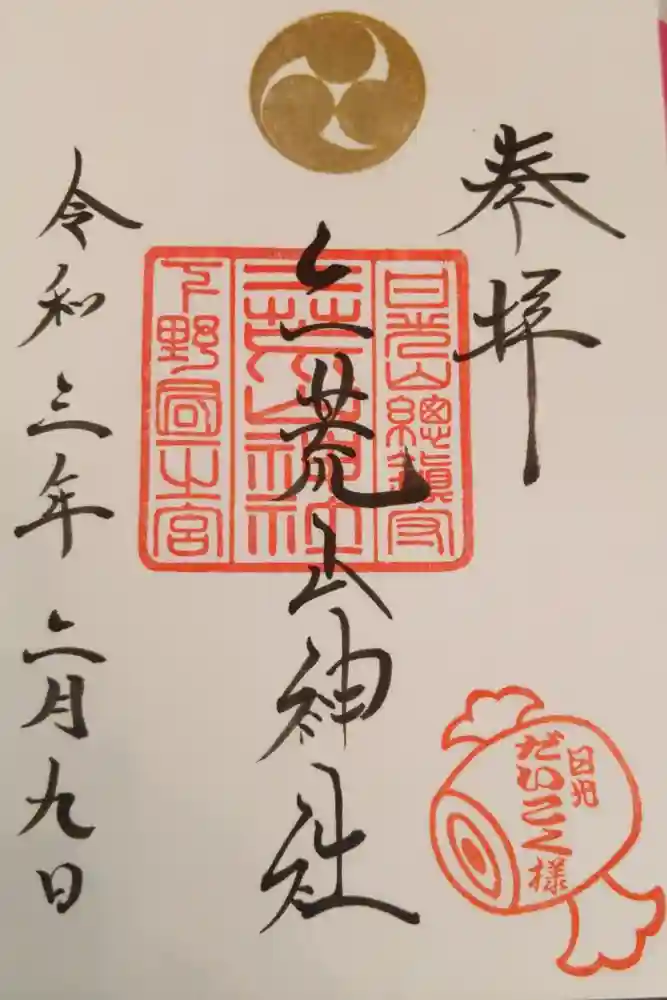 奉拝
日光山總鎮守
二荒山神社
下野國一之宮
二荒山神社
令和三年二月九日
日光
だいこく様